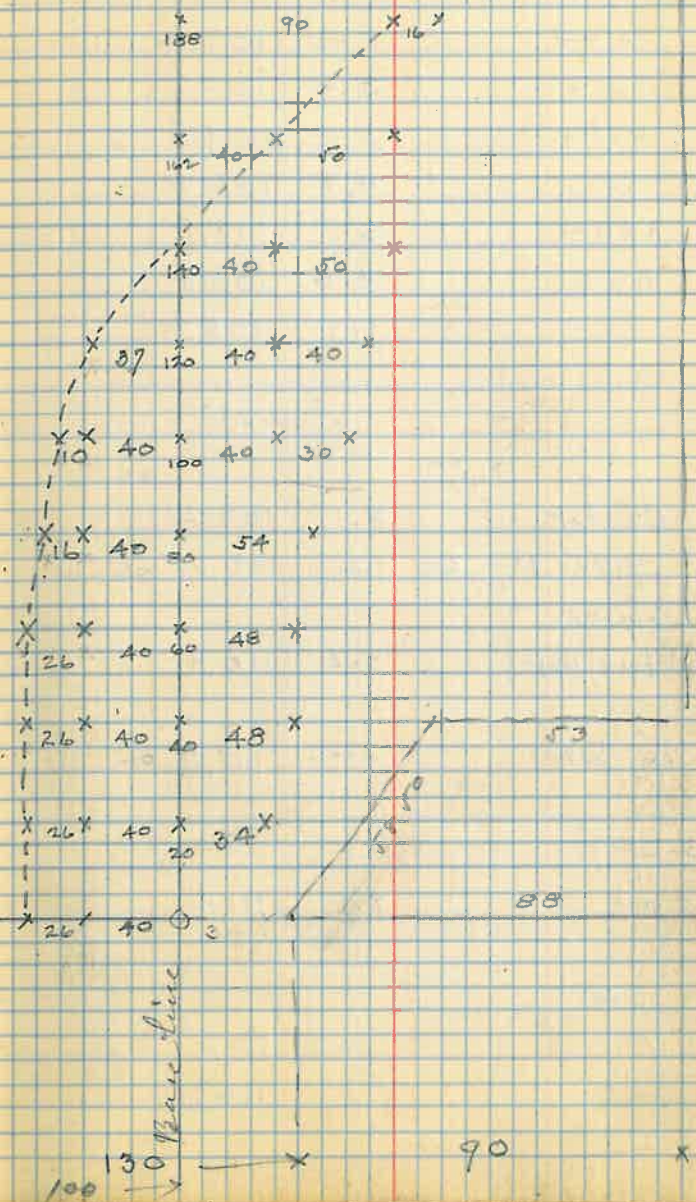 90 16
188
162 40 50
140 40 50
37 120 40 40
10 40 100 40 30
16 40 80 54
26 40 60 48
26 40 40 48 53
50
26 40 20 34
88
26 40
Base Line
130 90
100